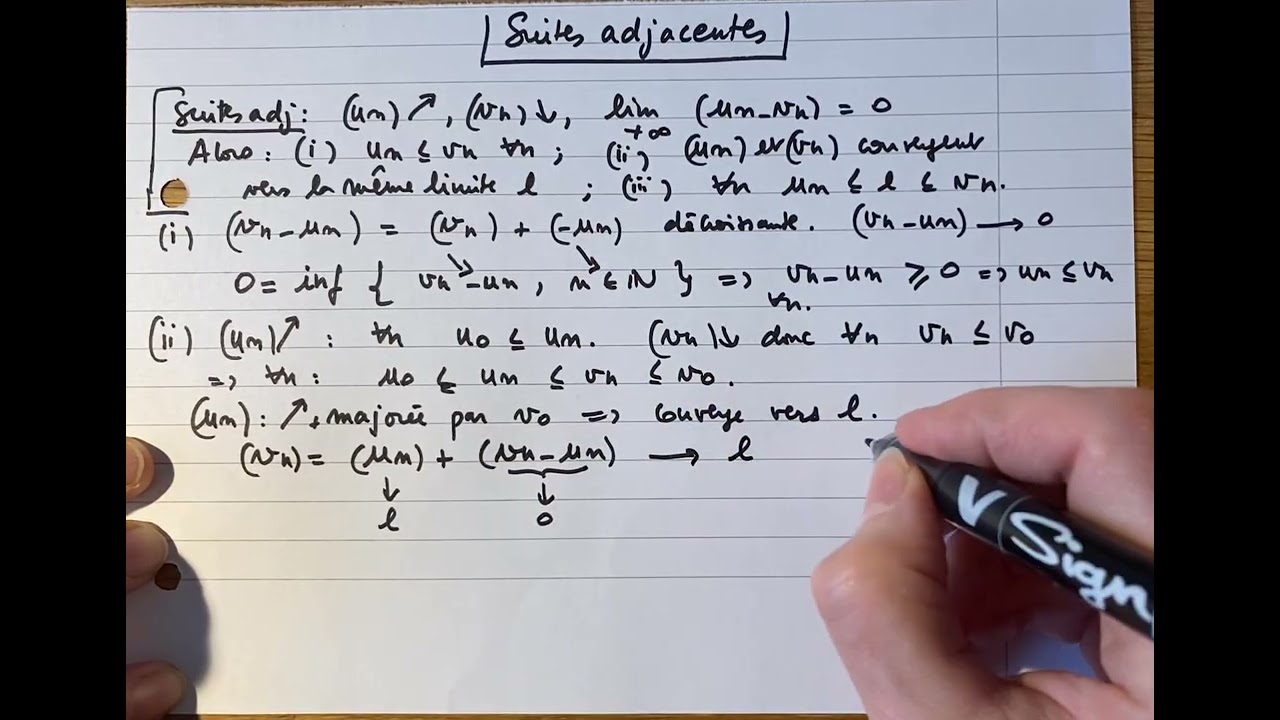 Suites adjacentes
Suites adj : (un) ↗, (vn) ↓, lim (un - vn) = 0
+∞
Alors : (i) un ≤ vn ∀n ; (ii) (un) et (vn) convergent
vers la même limite l ; (iii) ∀n un ≤ l ≤ vn.
(i) (vn - un) = (vn) + (-un) décroissante. (vn - un) → 0
↘ ↘
0 = inf { vn - un, n ∈ ℕ } => vn - un ⩾ 0 => un ≤ vn
∀n.
(ii) (un) ↗ : ∀n u0 ≤ un. (vn) ↓ donc ∀n vn ≤ v0
=> ∀n : u0 ≤ un ≤ vn ≤ v0.
(un) : ↗ + majorée par v0 => converge vers l.
(vn) = (un) + (vn - un) → l
↓ ↓
l 0
V Sign